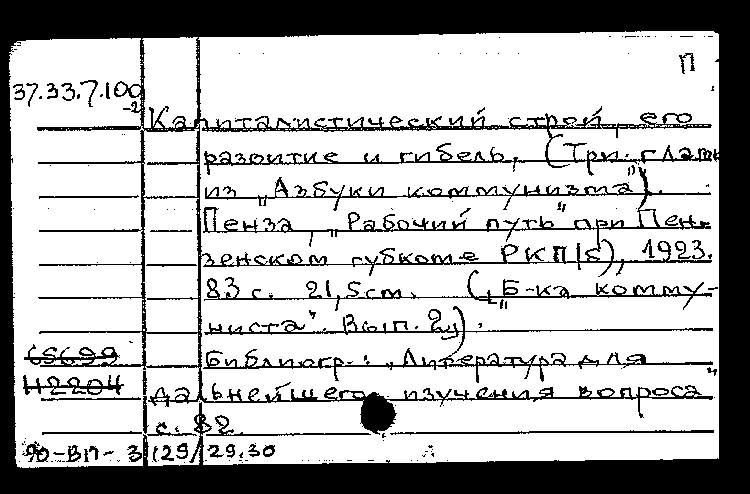 П
37.33.7.100
-2
Капиталистический строй, его
развитие и гибель, (Три главы
из „Азбуки коммунизма").
Пенза, „Рабочий путь" при Пен-
зенском губкоме РКП(б), 1923.
83 с. 21,5 см. („Б-ка комму-
ниста". Вып. 2й).
65699
Библиогр.: „Литература для
H2204
дальнейшего изучения вопроса"
с. 82.
90-ВП-3/129/29.30